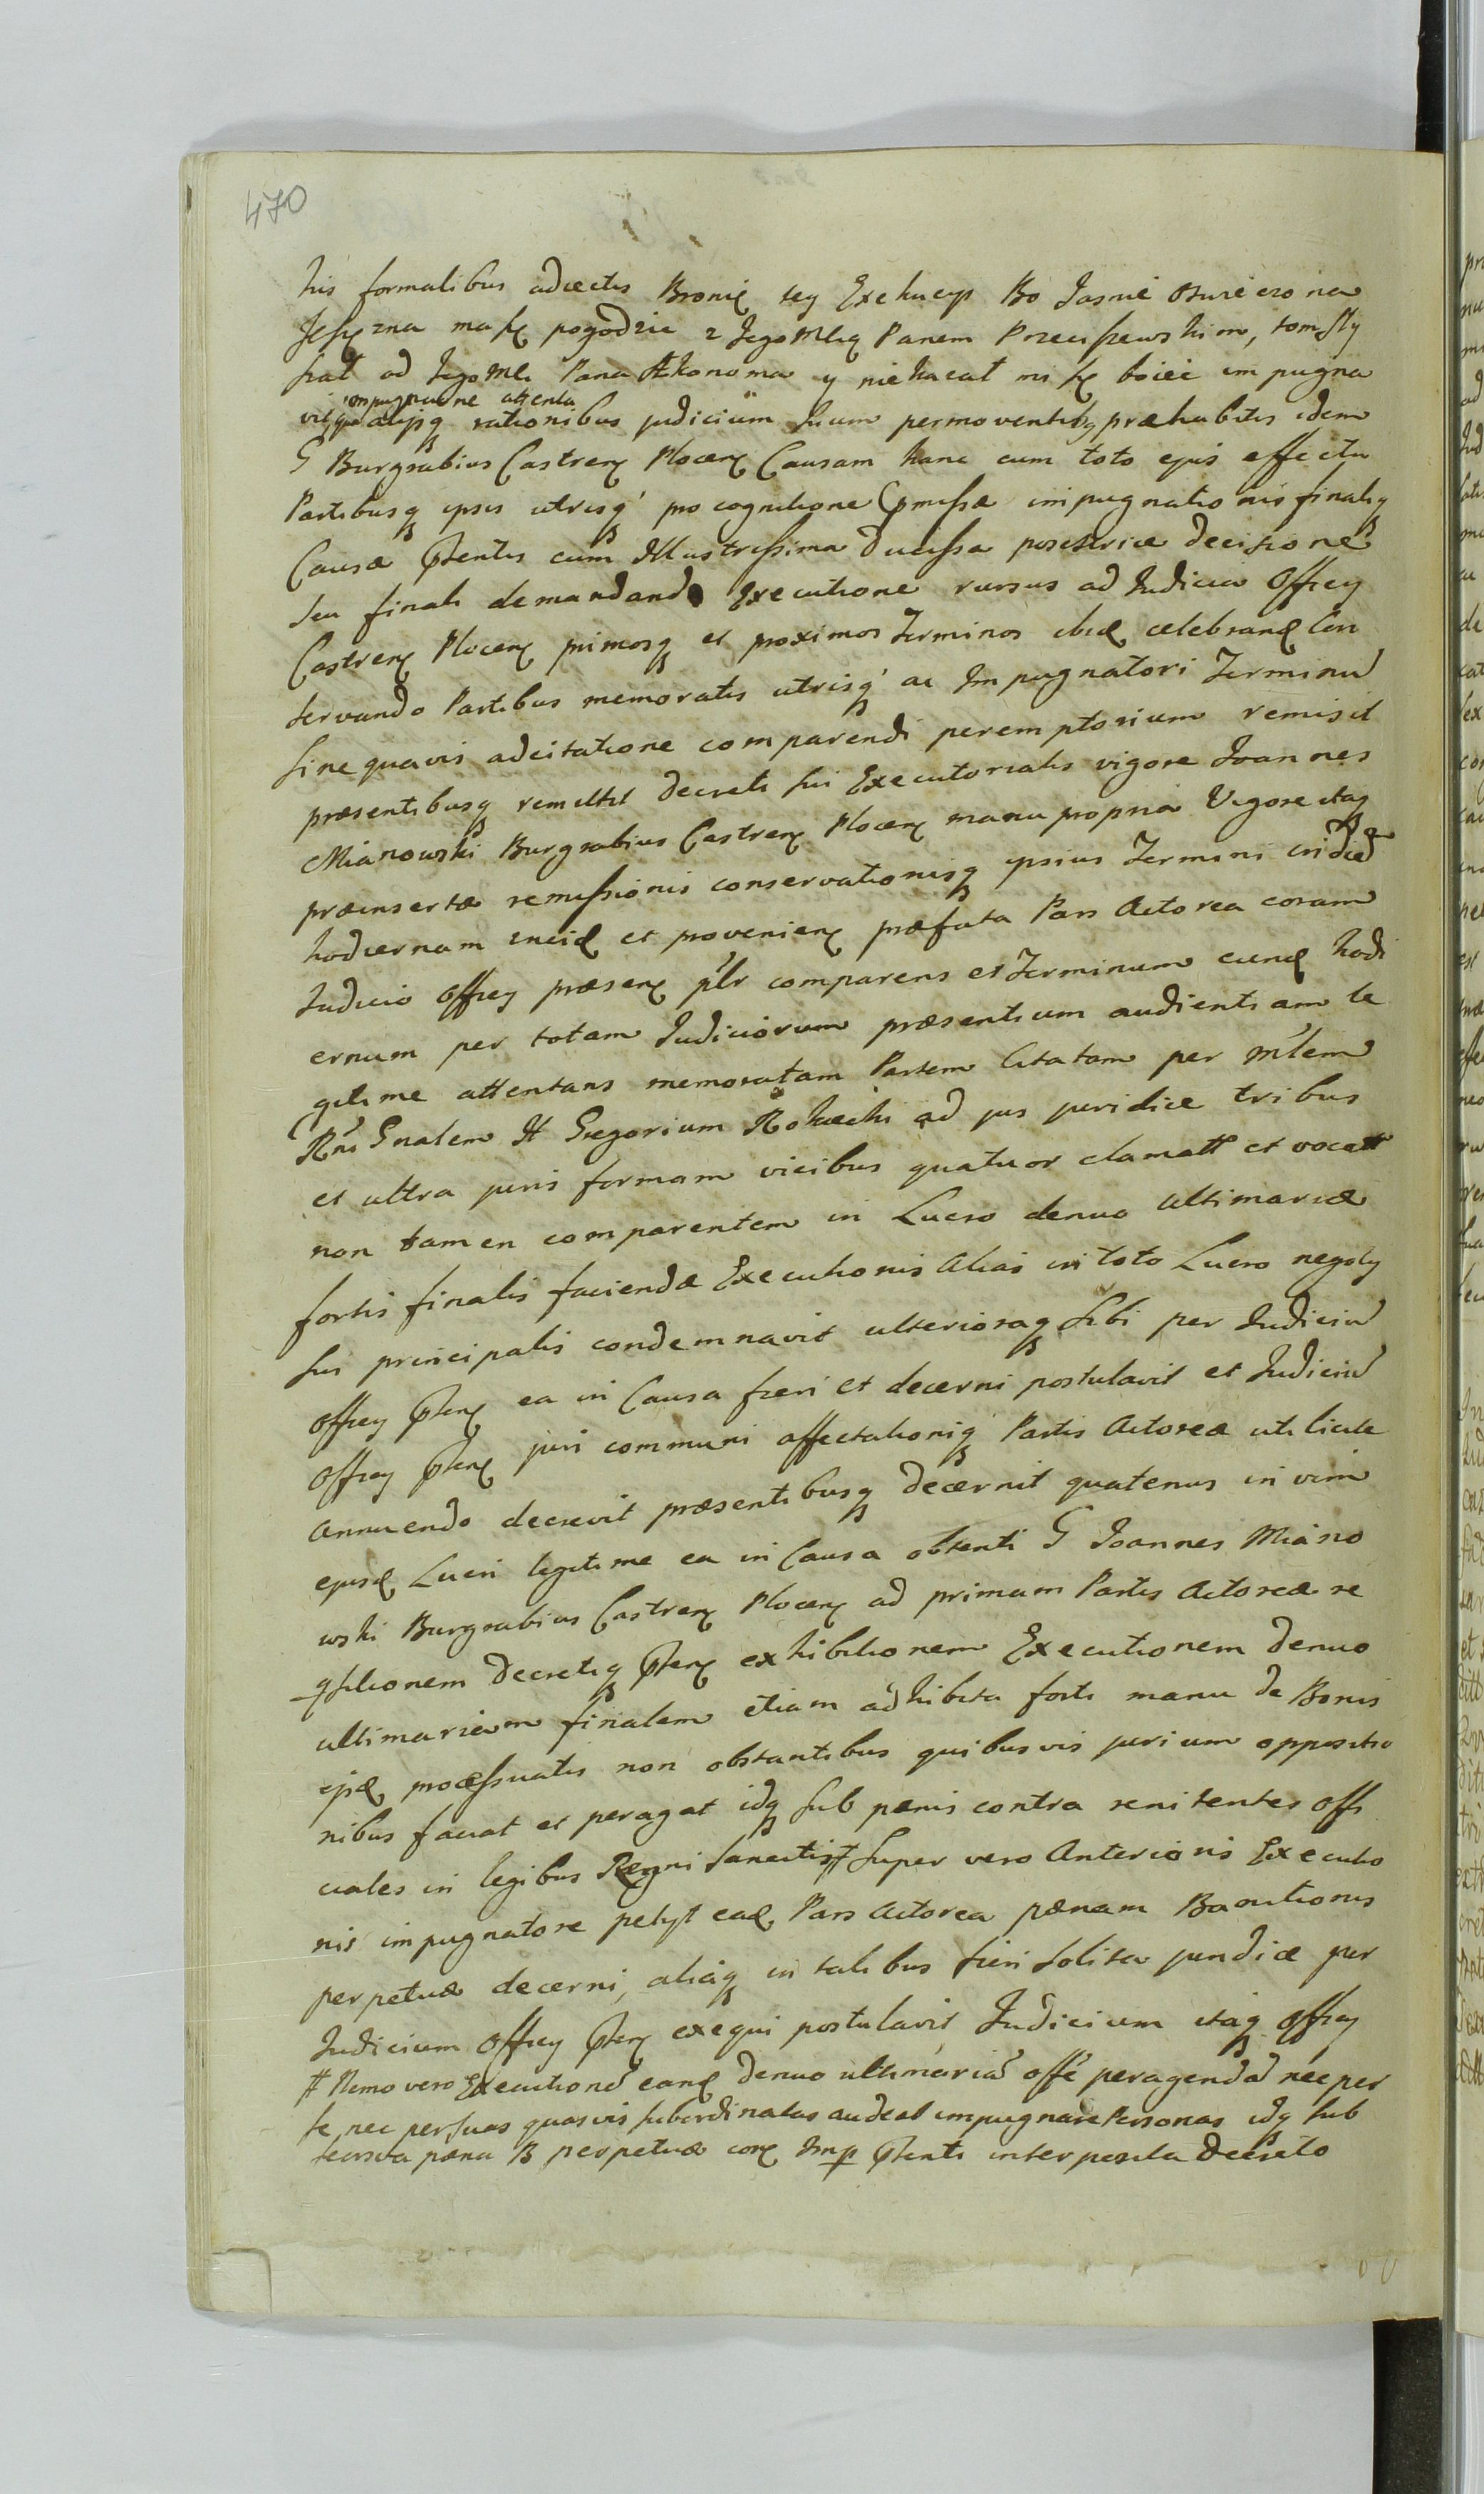 470
his formalibus adiectis Bronię tey Exekucyi Bo Jasnie Oswiecona
Xsięzna ma się pogodzic z JegoMścią Panem Przeciszewskim, tom sły
szał od JegoMści Pana Ekonoma y nie kazał mi się boiec impugna
impugnatione attenta
vit, qua alijsq rationibus judicium suum permoventibq præhabitis idem
G Burgrabius Castren Plocen Causam hanc cum toto ejus effectu
Partibusq ipsis utrisq pro cognitione præmissæ impugnationis finaliq
Causæ præsentis cum Illustrissima Ducissa possestrice decisione
seu finali demandanda Executione rursus ad Judicia Offley
Castren Plocen primosq et proximos Terminos ibid celebrand Con
servando Partibus memoratis utrisq ac Impugnatori Terminū
sine quavis adcitatione comparendi peremptorium remisit
præsentibusq remittit decreti sui Executorialis vigore Joannes
Mianowski Burgrabius Castren Plocen manu propria Vigore itaq
præinsertæ remissionis conservationisq ipsius Termini in diem
hodiernam incid et provenien præfata Pars Actorea coram
Judicio Offley præsen plr comparens et Terminum eund hodi
ernum per totam Judiciorum præsentium audientiam le
gitime attentans memoratam Partem Citatam per mlem
Rni Gnalem H Gregorium Rokicki ad jus juridice tribus
et ultra juris formam vicibus quatuor clamatt et vocatt
non tamen comparentem in Lucro denuo ultimariæ
fortis finalis faciendæ Executionis alias in toto Lucro negoty
sui principalis condemnavit ulterioraq sibi per Judiciū
Offley præsen ea in Causa fieri et decerni postulavit et Judiciū
Offley præsen juri communi affectationiq Partis Actoreæ uti licitæ
annuendo decrevit præsentibusq decernit quatenus in vim
ejusd Lucri legitime ea in Causa obtenti G Joannes Miano
wski Burgrabius Castren Plocen ad primam Partis Actoreæ re
qsitionem Decretiq præsen exhibitionem Executionem denuo
ultimariam finalem etiam adhibita forti manu de Bonis
ejsd processuatis non obstantibus quibusvis jurium oppositio
nibus faciat et peragat idq sub pœnis contra renitentes offi
ciales in legibus Regni sancitis # Super vero Anterioris Executio
nis impugnatore petyt ead Pars Actorea pœnam Bannitionis
perpetuæ decerni, aliaq in talibus fieri solita juridice per
Judicium Offley præsen exequi postulavit Judicium itaq Offley
# Nemo vero Executionē eand denuo ultimariā offē peragendā nec per
se, nec per suas quasvis subordinatas audeat impugnare Personas idq sub
pœna B perpetuæ Imp præsenti interposita Decreto